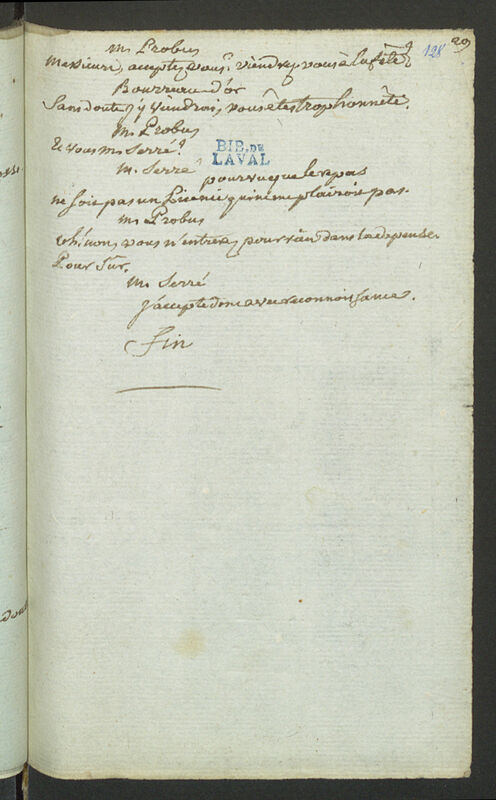 29
128
Mr Probus
Messieurs, acceptez vous? viendrez vous à la fête?
Bourreau d'or
Sans doute j'y viendrois, vous êtes trop honnête.
Mr Probus
Et vous mr Serré?
BIB. DE
LAVAL
Mr Serré
pourvu que le repas
ne soie pas un picnic qui ne me plairoit pas.
Mr Probus
Eh! non, vous n'entrerez pour rien dans la depense.
Pour sûr.
Mr Serré
J'accepte donc avec reconnoissance.
Fin